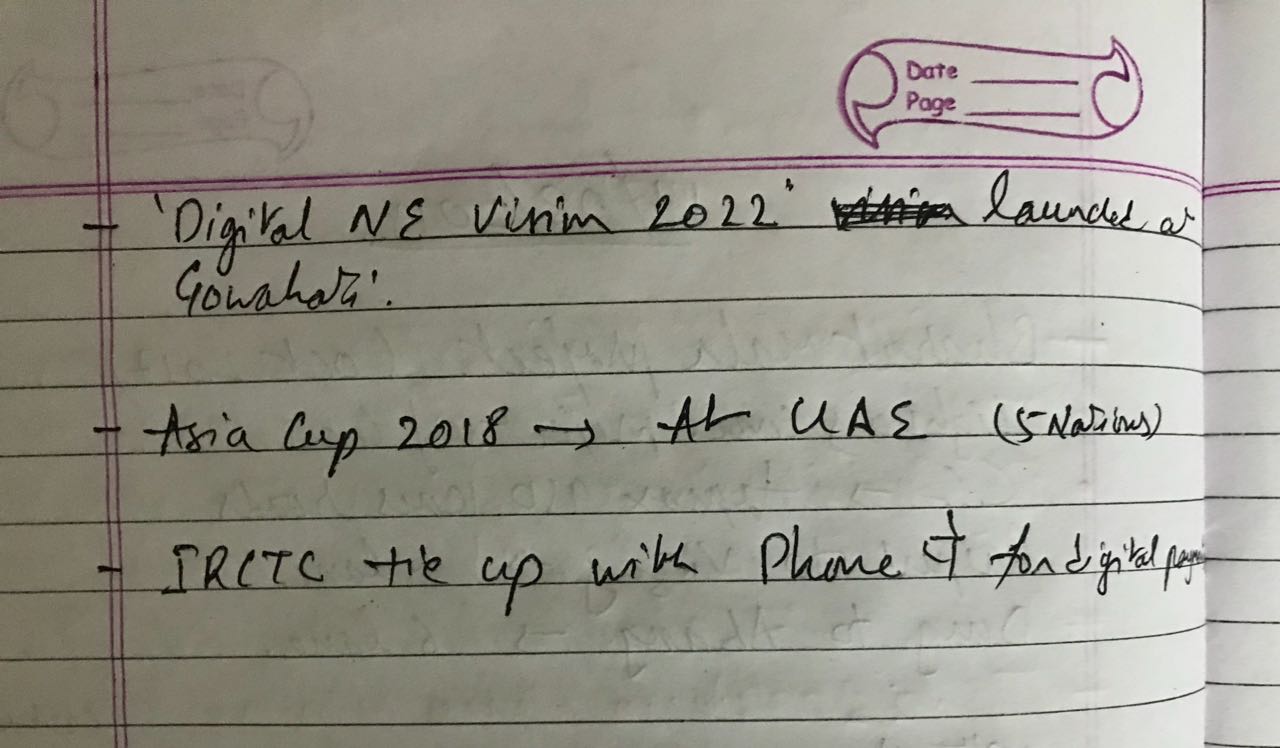 Date
Page
- 'Digital NE Vision 2022' launched at
Gowahati'.
- Asia Cup 2018 → At UAE (5-Nations)
- IRCTC tie up with Phone for digital